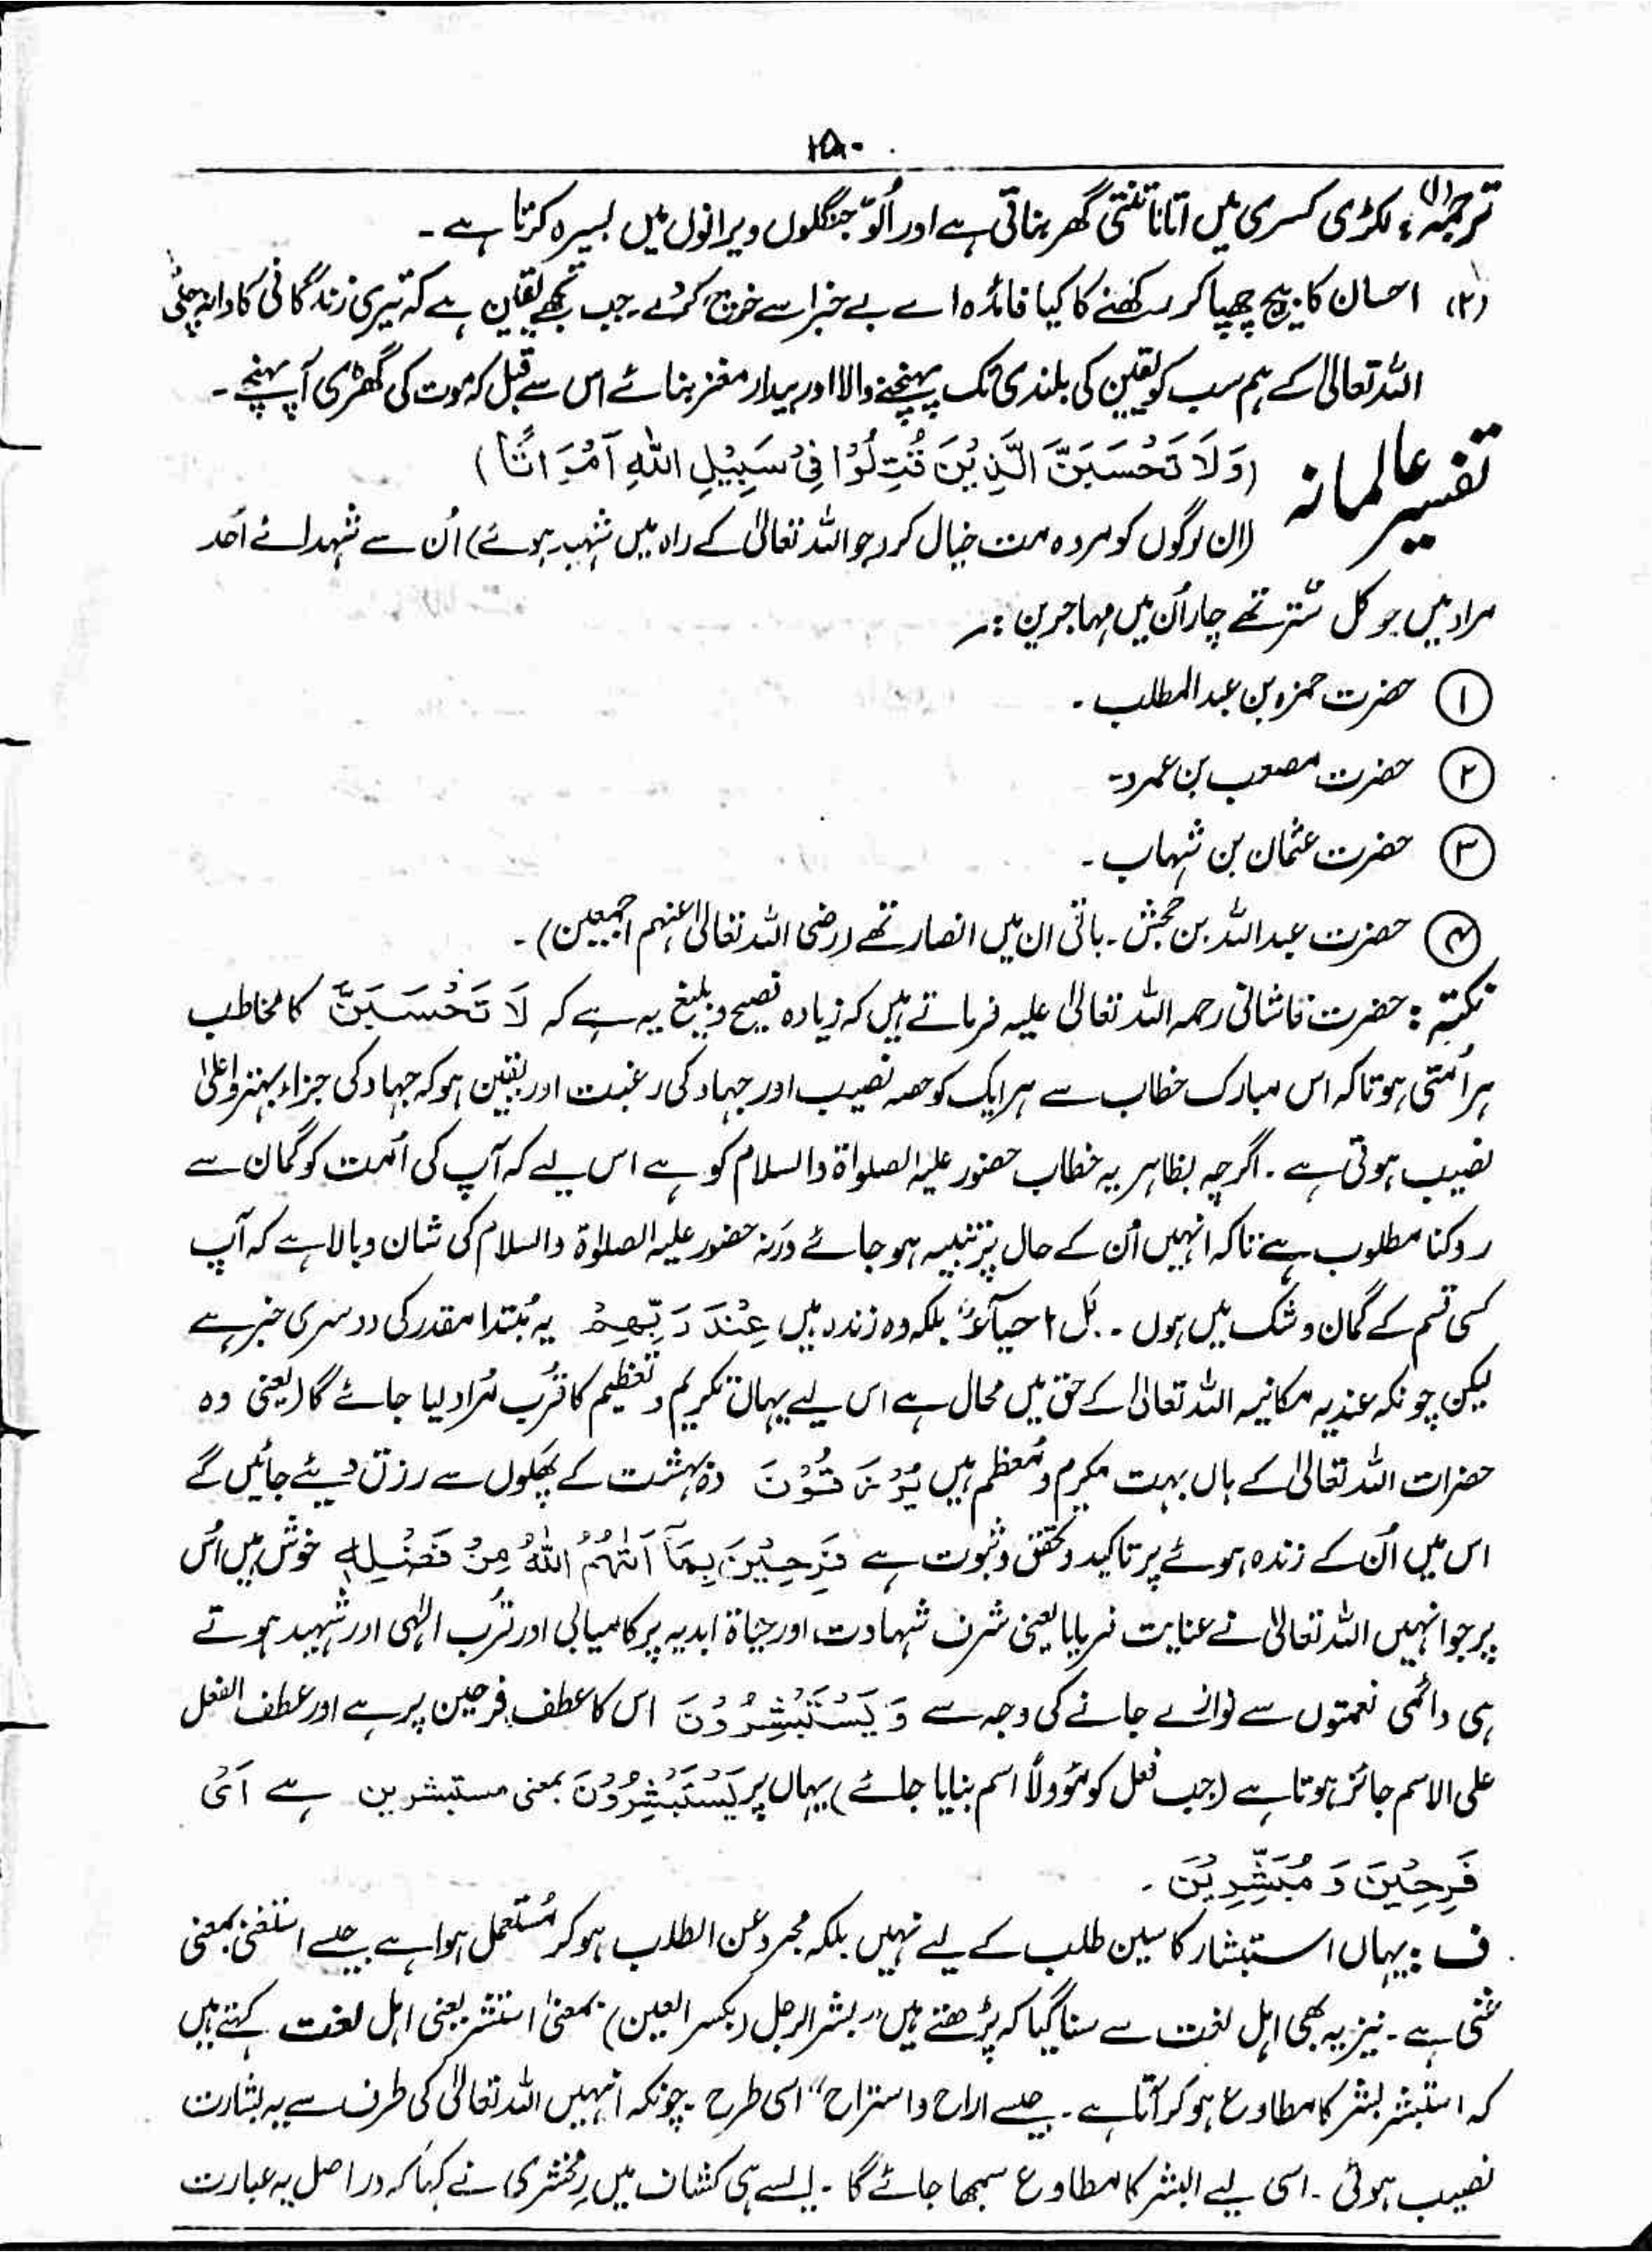 ۲۵۰
ترجمہ (۱): مکڑی کسری میں اتانا تنتی گھر بناتی ہے اور اُلوّ جنگلوں ویرانوں میں بسیرہ کرتا ہے ۔
(۲) احسان کا بیج چھپا کر رکھنے کا کیا فائدہ اے بے خبر اسے خرچ کردے جب تجھے یقین ہے کہ تیری زندگانی کا دانہ
اللہ تعالیٰ کے ہم سب کو یقین کی بلندی تک پہنچنے والا اور بیدار مغز بنائے اس سے قبل کہ موت کی گھڑی آ پہنچے ۔
تفسیر عالمانہ (وَلَا تَحْسَبَنَّ الَّذِيْنَ قُتِلُوْا فِيْ سَبِيْلِ اللهِ اَمْوَاتًا)
(ان لوگوں کو مردہ مت خیال کرو جو اللہ تعالیٰ کے راہ میں شہید ہوئے) اُن سے شہدائے اُحد
مراد ہیں جو کل ستّر تھے چار اُن میں مہاجرین :۔
① حضرت حمزہ بن عبدالمطلب ۔
② حضرت مصعب بن عمرو ۔
③ حضرت عثمان بن شہاب ۔
④ حضرت عبداللہ بن حجش ۔ باقی ان میں انصار تھے (رضی اللہ تعالیٰ عنہم اجمعین) ۔
نکتہ : حضرت قاشانی رحمہ اللہ تعالیٰ علیہ فرماتے ہیں کہ زیادہ فصیح و بلیغ یہ ہے کہ لَا تَحْسَبَنَّ کا مخاطب
ہر اُمتی ہو تاکہ اس مبارک خطاب سے ہر ایک کو حصہ نصیب اور جہاد کی رغبت اور یقین ہو کہ جہاد کی جزاء بہتر و اعلیٰ
نصیب ہوتی ہے ۔ اگرچہ بظاہر یہ خطاب حضور علیہ الصلواۃ والسلام کو ہے اس لیے کہ آپ کی اُمت کو گمان سے
روکنا مطلوب ہے تاکہ انہیں اُن کے حال پر تنبیہ ہو جائے ورنہ حضور علیہ الصلوٰۃ والسلام کی شان وبالا ہے کہ آپ
کسی قسم کے گمان و شک میں ہوں ۔ بَل احیآءٌ بلکہ وہ زندہ ہیں عِنْدَ رَبِّهِمْ یہ مُبتدا مقدر کی دوسری خبر ہے
لیکن چونکہ عندیہ مکانیہ اللہ تعالیٰ کے حق میں محال ہے اس لیے یہاں تکریم و تعظیم کا قُرب مُراد لیا جائے گا (یعنی وہ
حضرات اللہ تعالیٰ کے ہاں بہت مکرم و مُعظم ہیں يُرْزَقُوْنَ وہ بہشت کے پھلوں سے رزق دیئے جائیں گے
اس میں اُن کے زندہ ہوئے پر تاکید و تحقق و ثبوت ہے فَرِحِيْنَ بِمَآ اٰتٰهُمُ اللهُ مِنْ فَضْلِهٖ خوش ہیں اُس
پر جو انہیں اللہ تعالیٰ نے عنایت فرمایا یعنی شرف شہادت اور حیاۃ ابدیہ پر کامیابی اور قُرب الہٰی اور شہید ہوتے
ہی دائمی نعمتوں سے نوازے جانے کی وجہ سے وَيَسْتَبْشِرُوْنَ اس کا عطف فرحین پر ہے اور عطف الفعل
علی الاسم جائز ہوتا ہے (جب فعل کو مُؤولاً اسم بنایا جائے) یہاں پر يَسْتَبْشِرُوْنَ بمعنی مستبشرین ہے اَیْ
فَرِحِيْنَ وَ مُبَشِّرِيْنَ ۔
ف : یہاں استبشار کا سین طلب کے لیے نہیں بلکہ مجرد عن الطلب ہو کر مُستعمل ہوا ہے جیسے استغنی بمعنی
غنی ہے ۔ نیز یہ بھی اہل لغت سے سنا گیا کہ پڑھتے ہیں "بشر الرجل (بکسر العین) بمعنیٰ استبشر یعنی اہل لغت کہتے ہیں
کہ استبشر بشر کا مطاوع ہو کر آتا ہے ۔ جیسے اراح واستراح" اسی طرح ۔ چونکہ انہیں اللہ تعالیٰ کی طرف سے یہ بشارت
نصیب ہوئی ۔ اسی لیے البشر کا مطاوع سمجھا جائے گا ۔ ایسے ہی کشاف میں زمخشری نے کہا کہ دراصل یہ عبارت